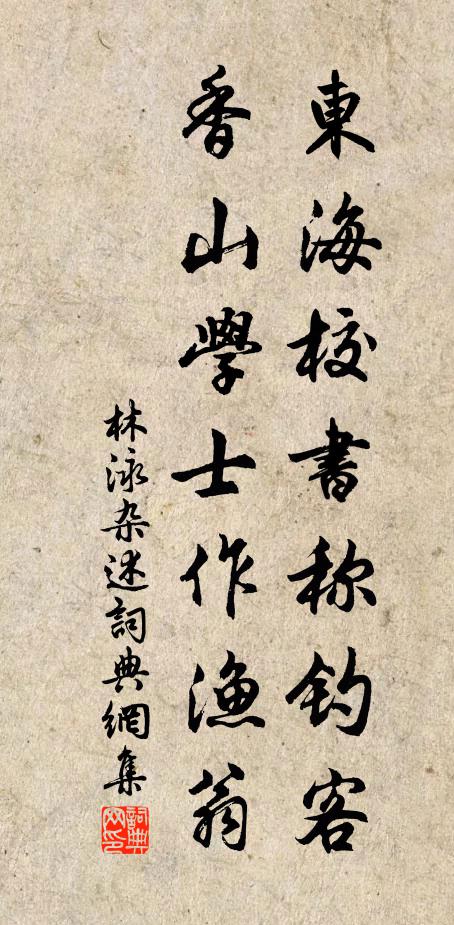 東海校書称釣客
香山學士作漁翁
林泳杂述詞典網集
詞典网印